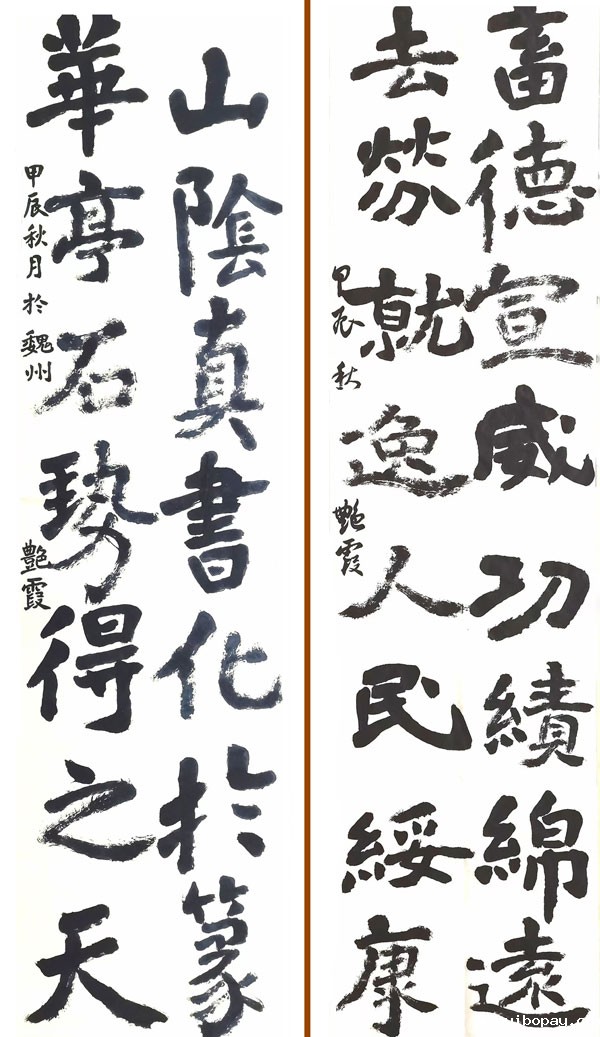 畜德宣威功績綿遠
去勞就逸人民綏康
甲辰秋
艷霞
山陰真書化於篆
華亭石勢得之天
甲辰秋月於魏州
艷霞